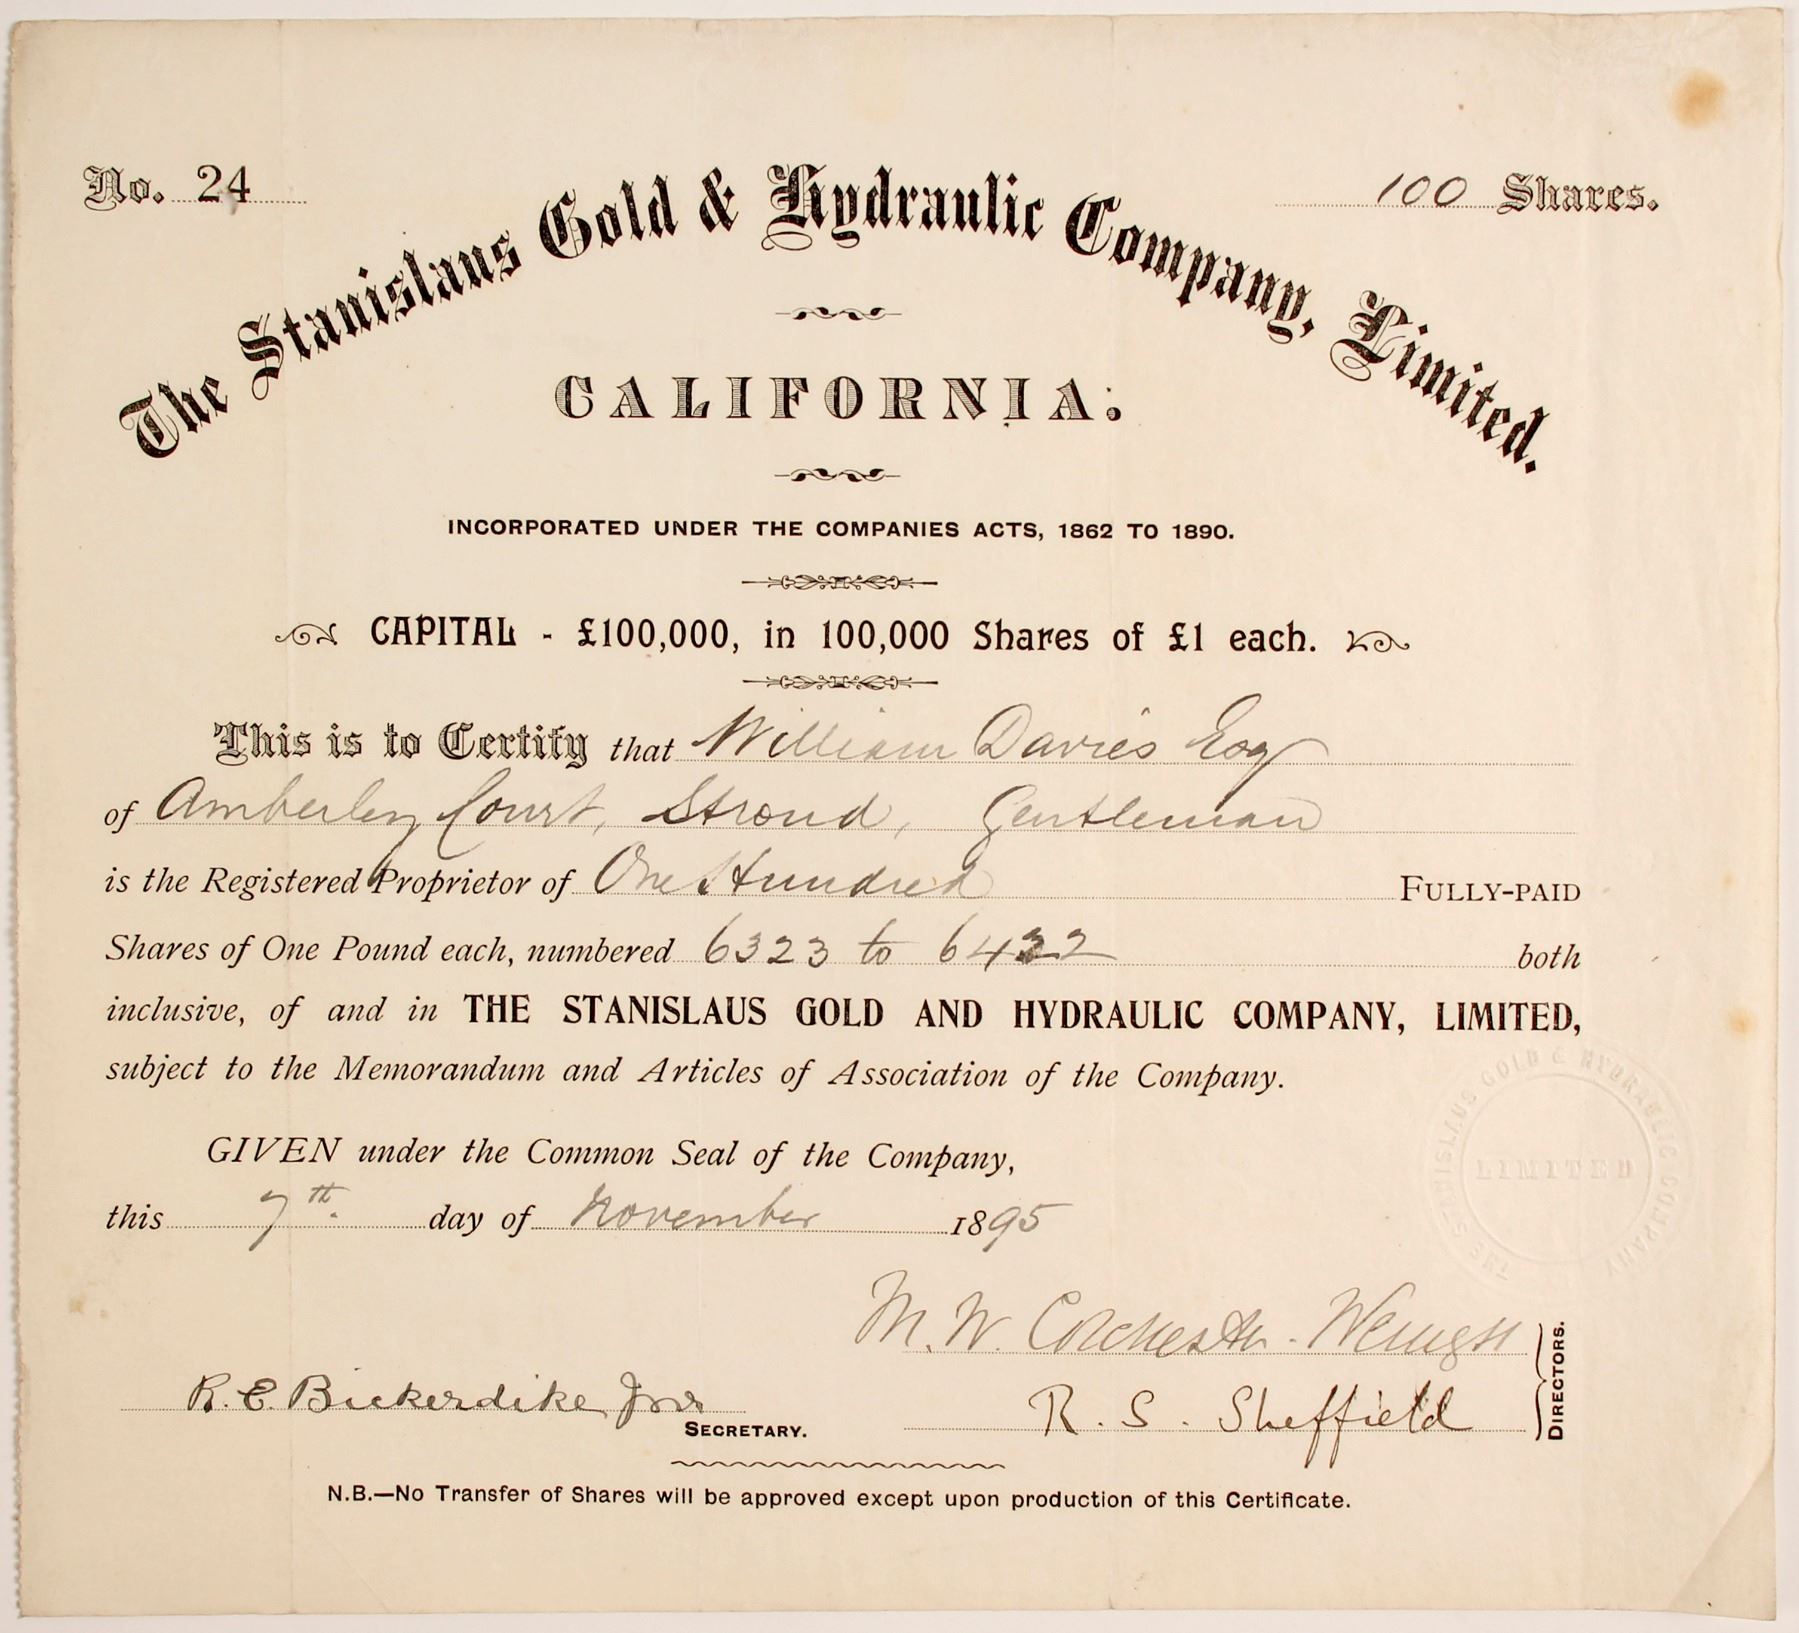 No. 24
100 Shares.
The Stanislaus Gold & Hydraulic Company, Limited.
CALIFORNIA.
INCORPORATED UNDER THE COMPANIES ACTS, 1862 TO 1890.
CAPITAL - £100,000, in 100,000 Shares of £1 each.
This is to Certify that William Davies Esq
of Amberley Court, Stroud, Gentleman
is the Registered Proprietor of One Hundred FULLY-PAID
Shares of One Pound each, numbered 6323 to 6422 both
inclusive, of and in THE STANISLAUS GOLD AND HYDRAULIC COMPANY, LIMITED,
subject to the Memorandum and Articles of Association of the Company.
GIVEN under the Common Seal of the Company,
this 7th. day of November 1895
THE STANISLAUS GOLD & HYDRAULIC COMPANY
LIMITED
M. W. Colchester-Wemyss
R. E. Bickerdike, Jnr
SECRETARY.
R. S. Sheffield
DIRECTORS.
N.B.—No Transfer of Shares will be approved except upon production of this Certificate.